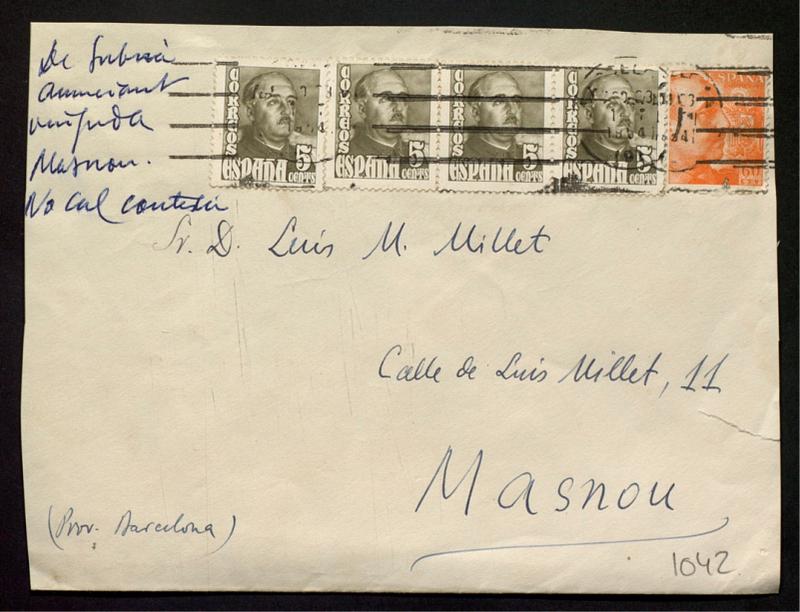 De Subirà
anunciant
vinguda
Masnou.
No cal contestar
CORREOS
ESPAÑA
5
CENTS
CORREOS
ESPAÑA
5
CENTS
CORREOS
ESPAÑA
5
CENTS
CORREOS
ESPAÑA
5
CENTS
ESPAÑA
Sr. D. Luis M. Millet
Calle de Luis Millet, 11
Masnou
(Prov. Barcelona)
1042